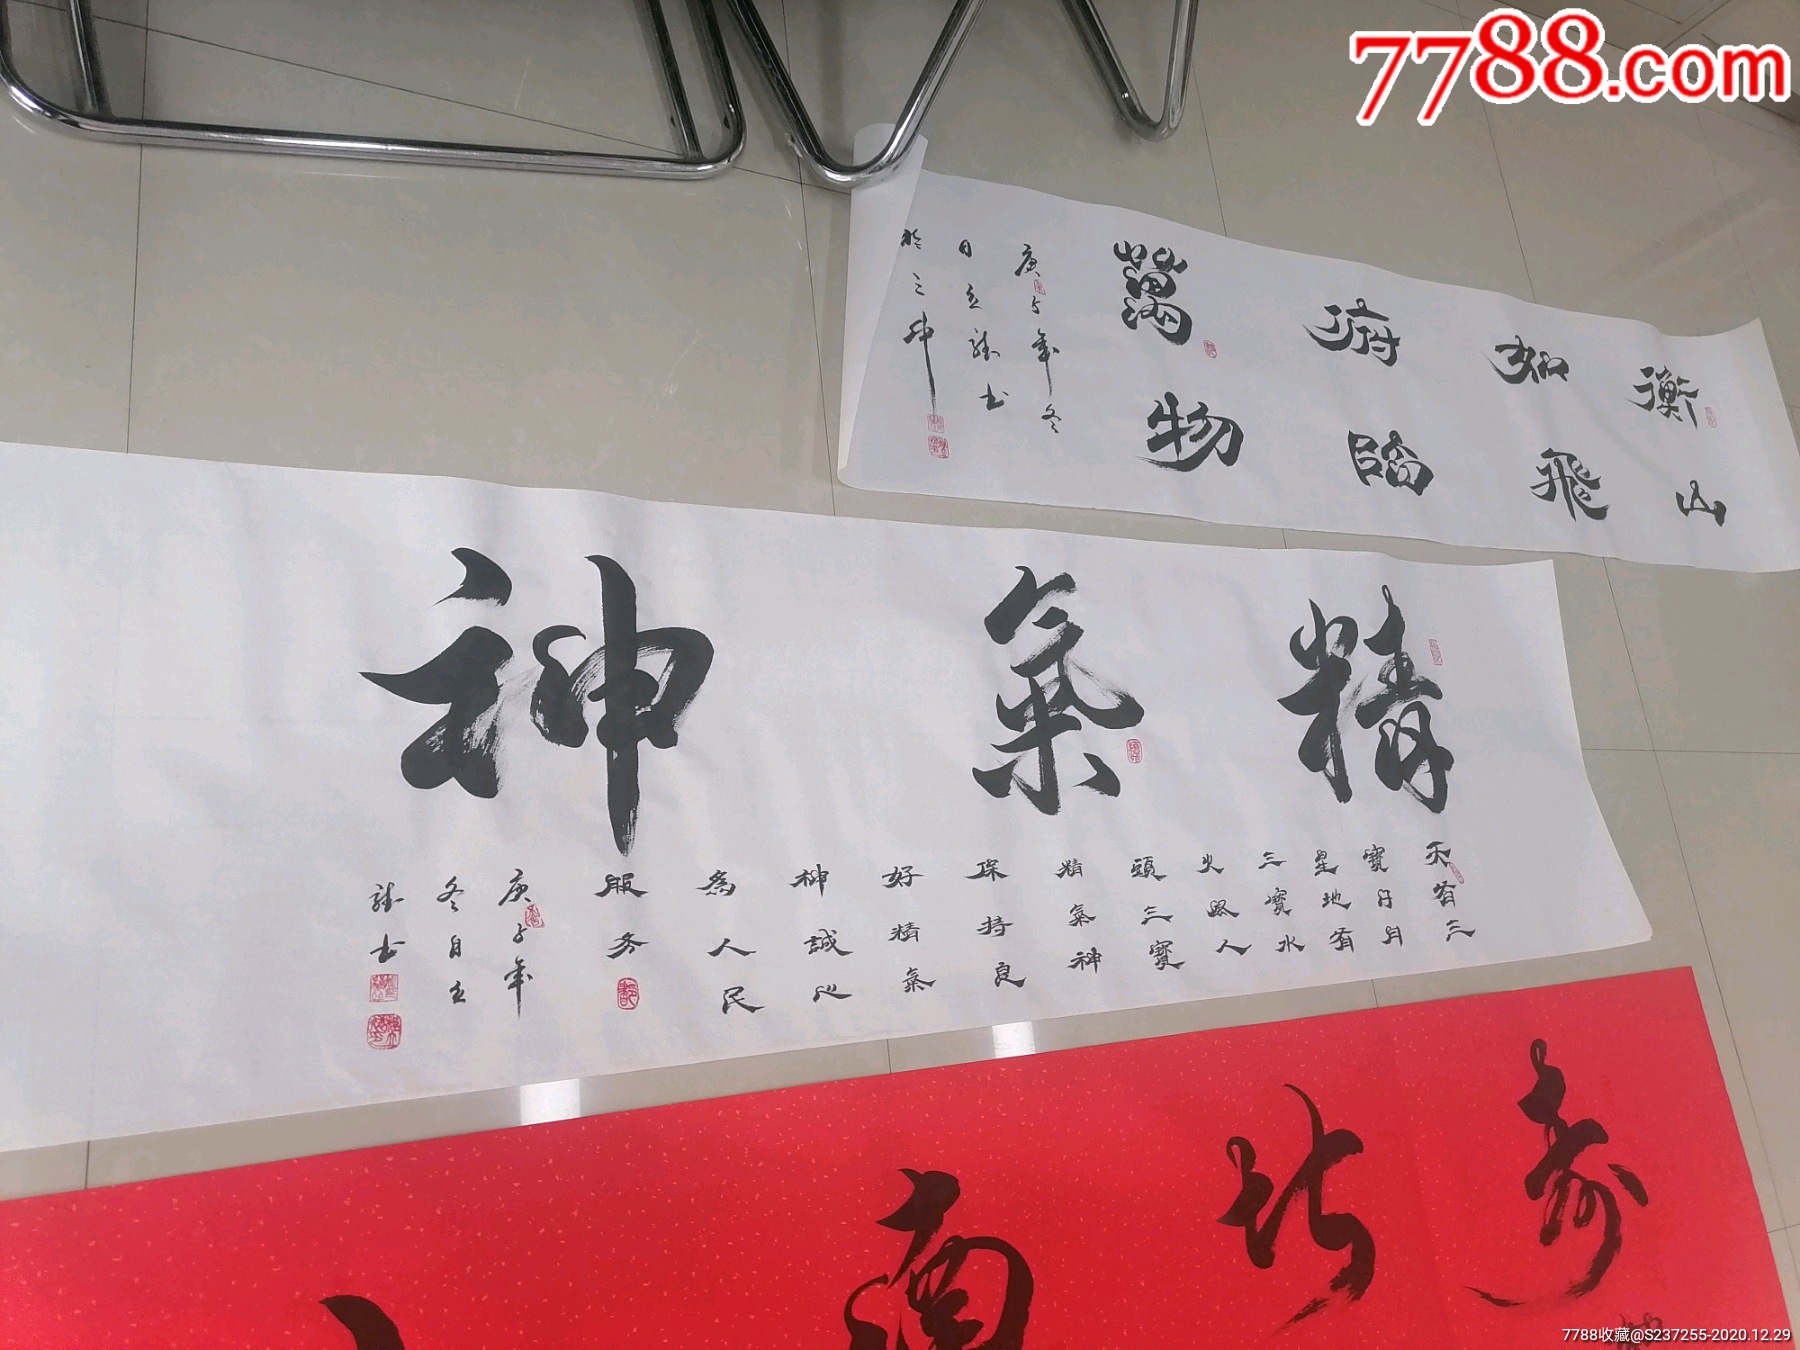 7788.com
衡山
如飛
府臨
萬物
庚子年冬
日立龍书
精氣神
天有三
寶日月
星地有
三寶水
火风人
頭三寶
精氣神
保持良
好精氣
神誠心
為人民
服务
庚子年
冬日立
龍书
壽比南
7788收藏@S237255-2020.12.29